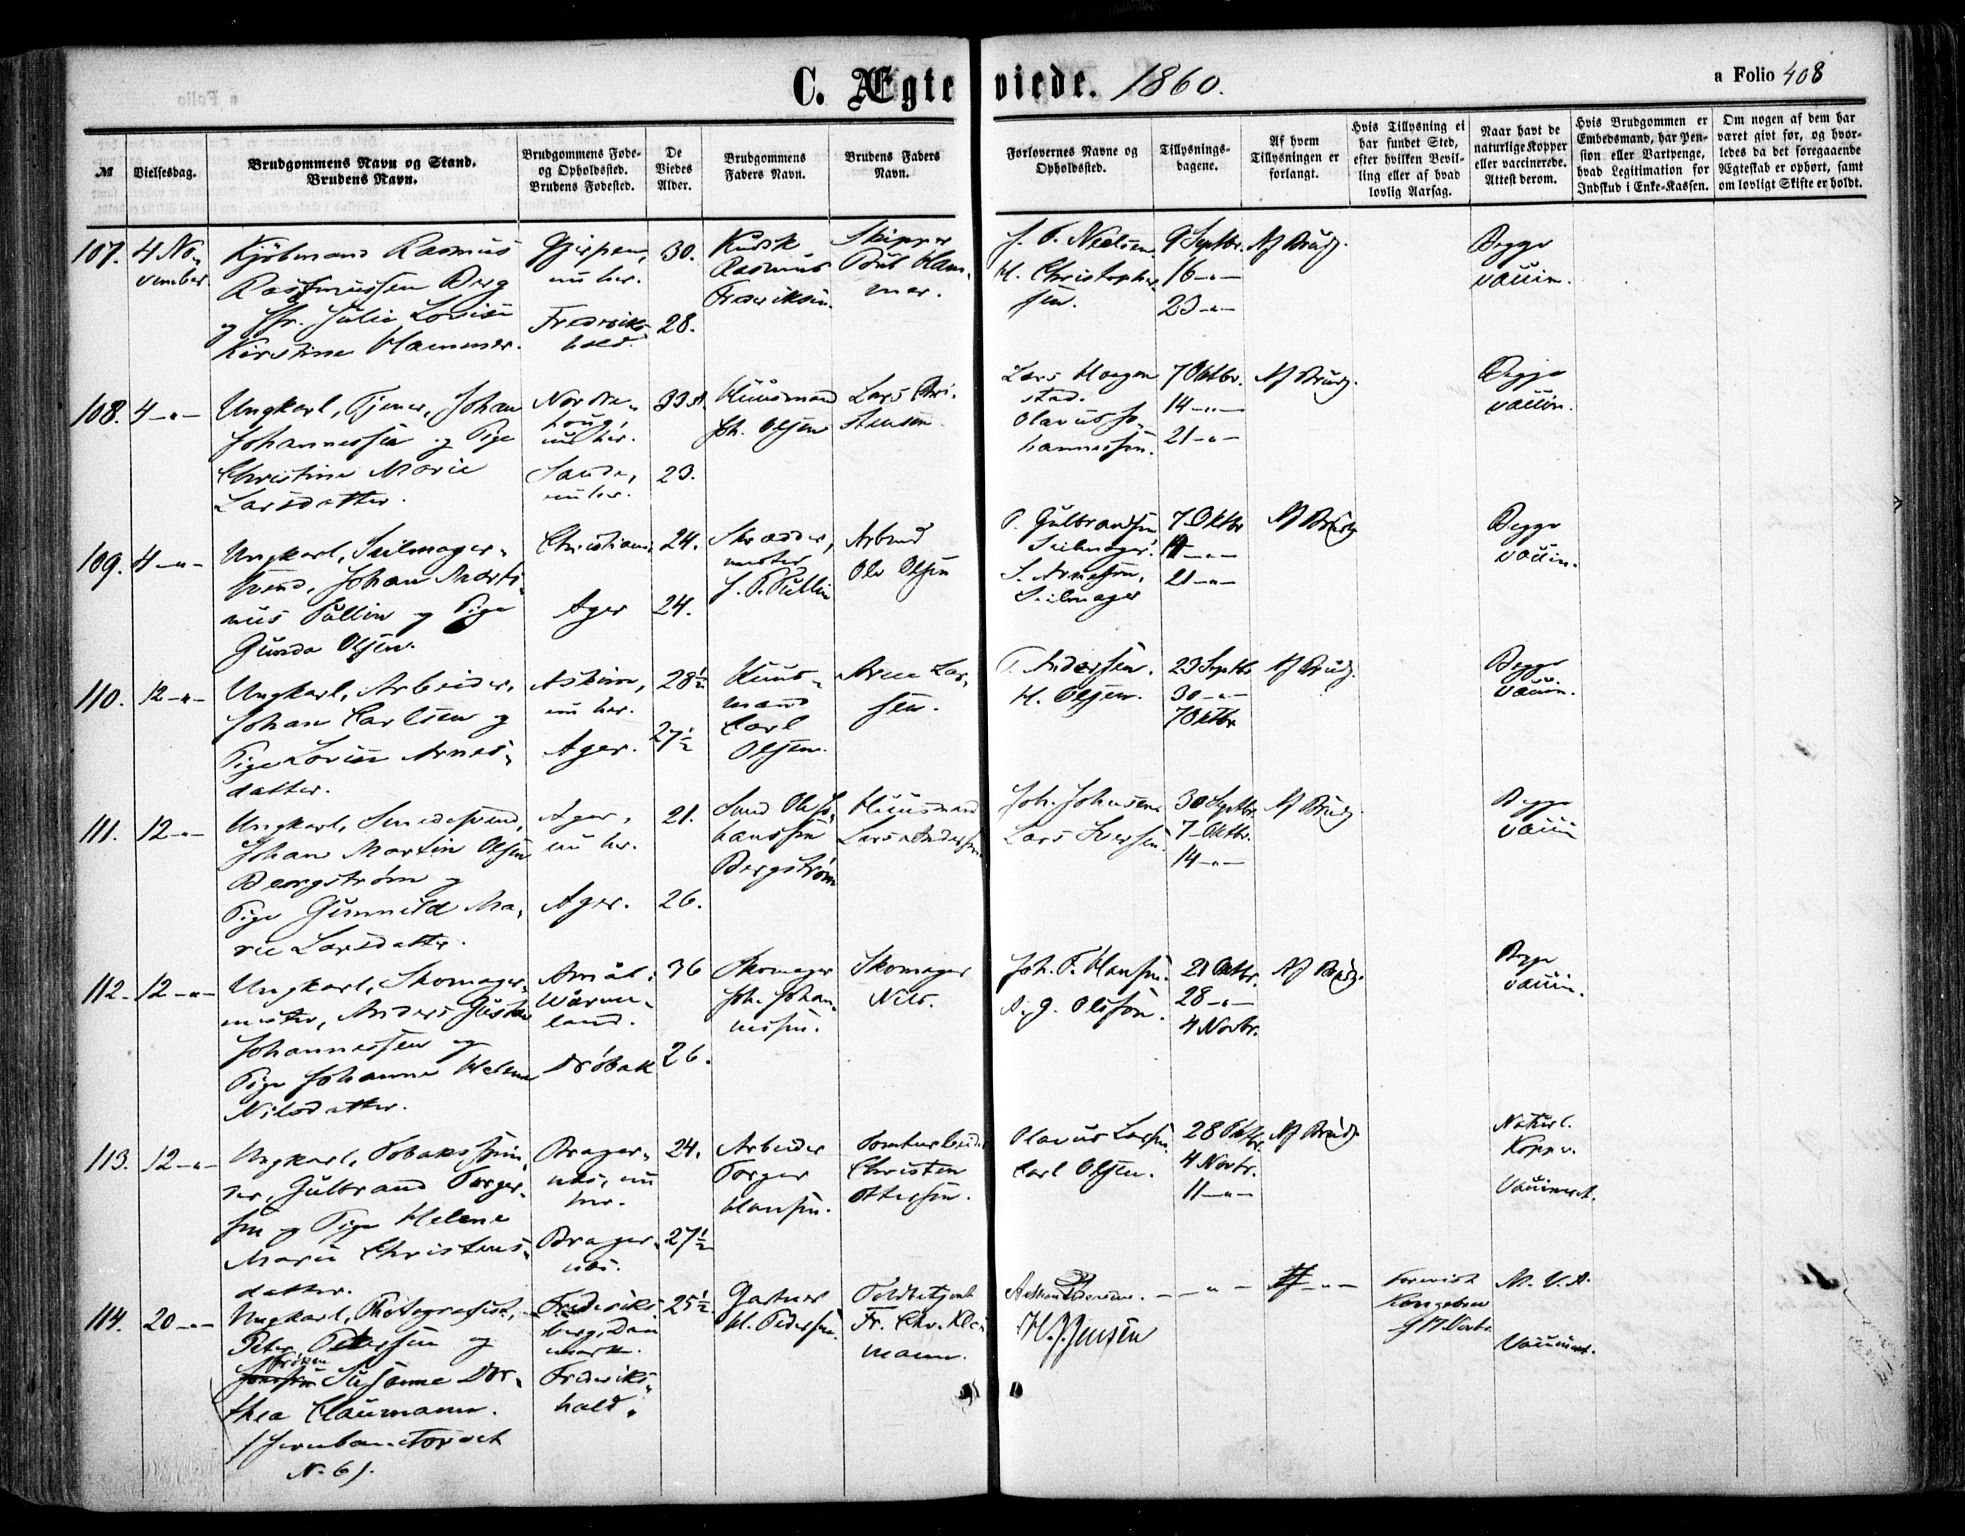 C. Ægteviede. 1860.
a Folio 408
№
Vielsesdag.
Brudgommens Navn og Stand.
Brudens Navn.
Brudgommens Føde-
og Opholdssted.
Brudens Fødested.
De
Viedes
Alder.
Brudgommens
Faders Navn.
Brudens Faders
Navn.
Forlovernes Navne og
Opholdssted.
Tillysnings-
dagene.
Af hvem
Tillysningen er
forlangt.
Hvis Tillysning ei
har fundet Sted,
efter hvilken Bevil-
ling eller af hvad
lovlig Aarsag.
Naar havt de
naturlige Kopper
eller vaccinerede.
Attest derom.
Hvis Brudgommen er
Embedsmand, har Pen-
sion eller Vartpenge,
hvad Legitimation for
Indskud i Enke-Kassen.
Om nogen af dem har
været givt før, og hvor-
ledes da det foregaaende
Ægteskab er ophørt, samt
om lovligt Skifte er holdt.
107.
4 No-
vember
Kjøbmand Rasmus
Rasmussen Berg
og Jfr. Julie Lovise
Kirstine Hammer.
Gjerpen,
nu her.
Fredriks-
hald.
30.
28.
Kudsk
Rasmus
Frederiksen.
Skipper
Poul Ham-
mer.
J. P. Nielsen
H. Christopher-
sen.
9 Septbr.
16 -"-
23 -"-
Af Brudg.
Begge
vaccin.
108.
4 -"-
Ungkarl, Tjener, Johan
Johannessen og Pige
Christine Marie
Larsdatter.
Nordre-
houg,
nu her.
Sande,
nu her.
33
23.
Huusmand
Joh. Olsen
Lars Chri-
stensen
Lars Haagen
stad.
Olavus Jo-
hannessen.
7 Oktbr.
14 -"-
21 -"-
Af Brudg.
Begge
vaccin.
109.
4 -"-
Ungkarl, Seilmager-
svend, Johan Marti-
nus Pullin og Pige
Gunda Olsen.
Christiania
Ager
24.
24.
Skrædder,
mester
J. P. Pullin
Arbmd
Ole Olsen
P. Gulbrandsen
Seilmager.
S. Arnesen,
Seilmager
7 Oktbr
14 -"-
21 -"-
Af Brudg
Begge
vaccin.
110.
12 -"-
Ungkarl, Arbeider,
Johan Carlsen og
Pige Lovise Arnes-
datter.
Askim,
nu her.
Ager.
28½
27½
Huus-
mand
Carl
Olsen.
Arne Lar-
sen.
P. Andersen.
H. Olsen.
23 Septbr
30 -"-
7 Oktbr
Af Brudg.
Begge
vaccin.
111.
12 -"-
Ungkarl, Smedesvend,
Johan Martin Olsen
Bergstrøm og
Pige Gunnild Ma-
rie Larsdatter.
Ager,
nu her.
Ager.
21.
26.
Smd Ole Jo-
hansson
Bergstrøm
Huusmand
Lars Andersen
Joh. Johnsen
Lars Iversen
30 Septbr.
7 Oktbr.
14 -"-
Af Brudg.
Begge
vaccin
112.
12 -"-
Ungkarl, Skomager-
mester, Anders Gustav
Johannessen og
Pige Johanne Helene
Nilsdatter.
Amål.
Wärme-
land.
Drøbak
36
26.
Skomager
Joh. Johan-
nessen.
Skomager
Nils.
Joh. F. Hansen.
A. G. Olsson.
21 Oktbr.
28 -"-
4 Novbr.
Af Brudg.
Begge
vaccin.
113.
12 -"-
Ungkarl, Tobaksspin-
der, Gulbrand Torger-
sen og Pige Helene
Marie Christens-
datter.
Brager-
næs, nu
her.
Brager-
næs.
24.
27½
Arbeider
Torger
Hansen.
Tomtarbeider
Christen
Ottersen.
Olavus Larsen
Carl Olsen.
28 Oktbr.
4 Novbr.
11 -"-
Af Brudg
Naturl.
Kopper.
Vaccineret.
114.
20 -"-
Ungkarl, Photografist,
Peter Petersen og
Frøken
Susanne Dor-
thea Claumann.
(Jernbanetorvet
N. 6).
Frederiks
berg, Dan
mark.
Frederiks-
hald.
25½
Gartner
H. Pedersen.
Toldbetjent
Fr. Chr. Kla
mann.
H. J. Jensen
- " -
- " -
Foreviist
Kongebrev
17 Novbr.
M. V. A.
Vaccineret.